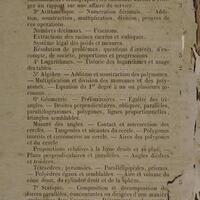 ger un rapport sur une affaire de service.
3° Arithmétique. — Numération décimale. — Addi-
tion, soustraction, multiplication, division, preuves de
ces opérations.
Nombres décimaux. — Fractions.
Extractions des racines carrées et cubiques.
Système légal des poids et mesures.
Résolution de problèmes : questions d'intérêt, d'es-
compte, de société, proportions et progressions.
4° Logarithmes. — Théorie des logarithmes et usage
des tables.
5° Algèbre. — Addition et soustraction des polynômes.
— Multiplication et division des monômes et des poly-
nômes. — Équation du 1er degré à un ou plusieurs in-
connues.
6° Géométrie. — Préliminaires. — Égalité des tri-
angles. — Droites perpendiculaires, obliques, parallèles,
parallélogrammes, polygones, lignes proportionnelles,
triangles semblables.
Mesure des angles. — Contact et intersection des
cercles. — Tangentes et sécantes du cercle. — Polygones
inscrits et circonscrits au cercle. — Aires des polygones
et du cercle.
Proportions relatives à la ligne droite et au plan.
Plans perpendiculaires et parallèles. — Angles dièdres
et trièdres.
Tétraèdres, pyramides. — Parallélépipèdes, prismes.
— Polyèdres égaux et semblables. — Aire et volume du
cône droit, du cylindre droit et de la sphère.
7° Statique. — Composition et décomposition de
forces parallèles, concourantes ou dirigées d'une manière